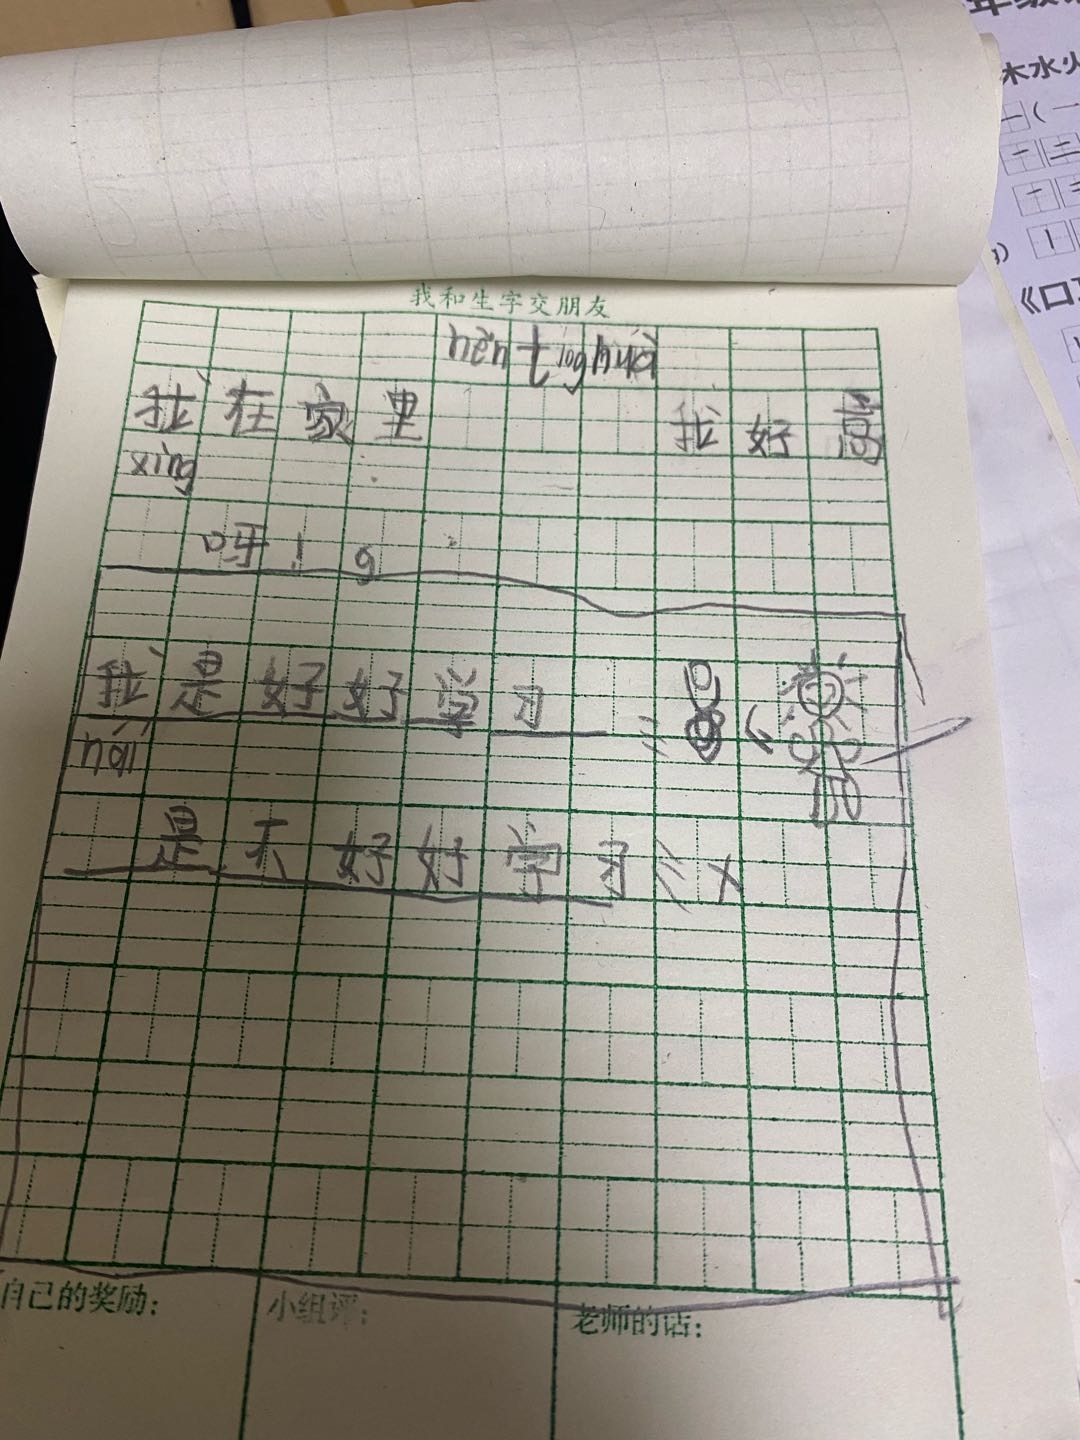 年级
木水火
(一
一 二
十
《口
我和生字交朋友
hěn tīng huà
我在家里 我好高
xìng
呀!
我是好好学习
nǎi
是不好好学习 x
自己的奖励:
小组评:
老师的话: